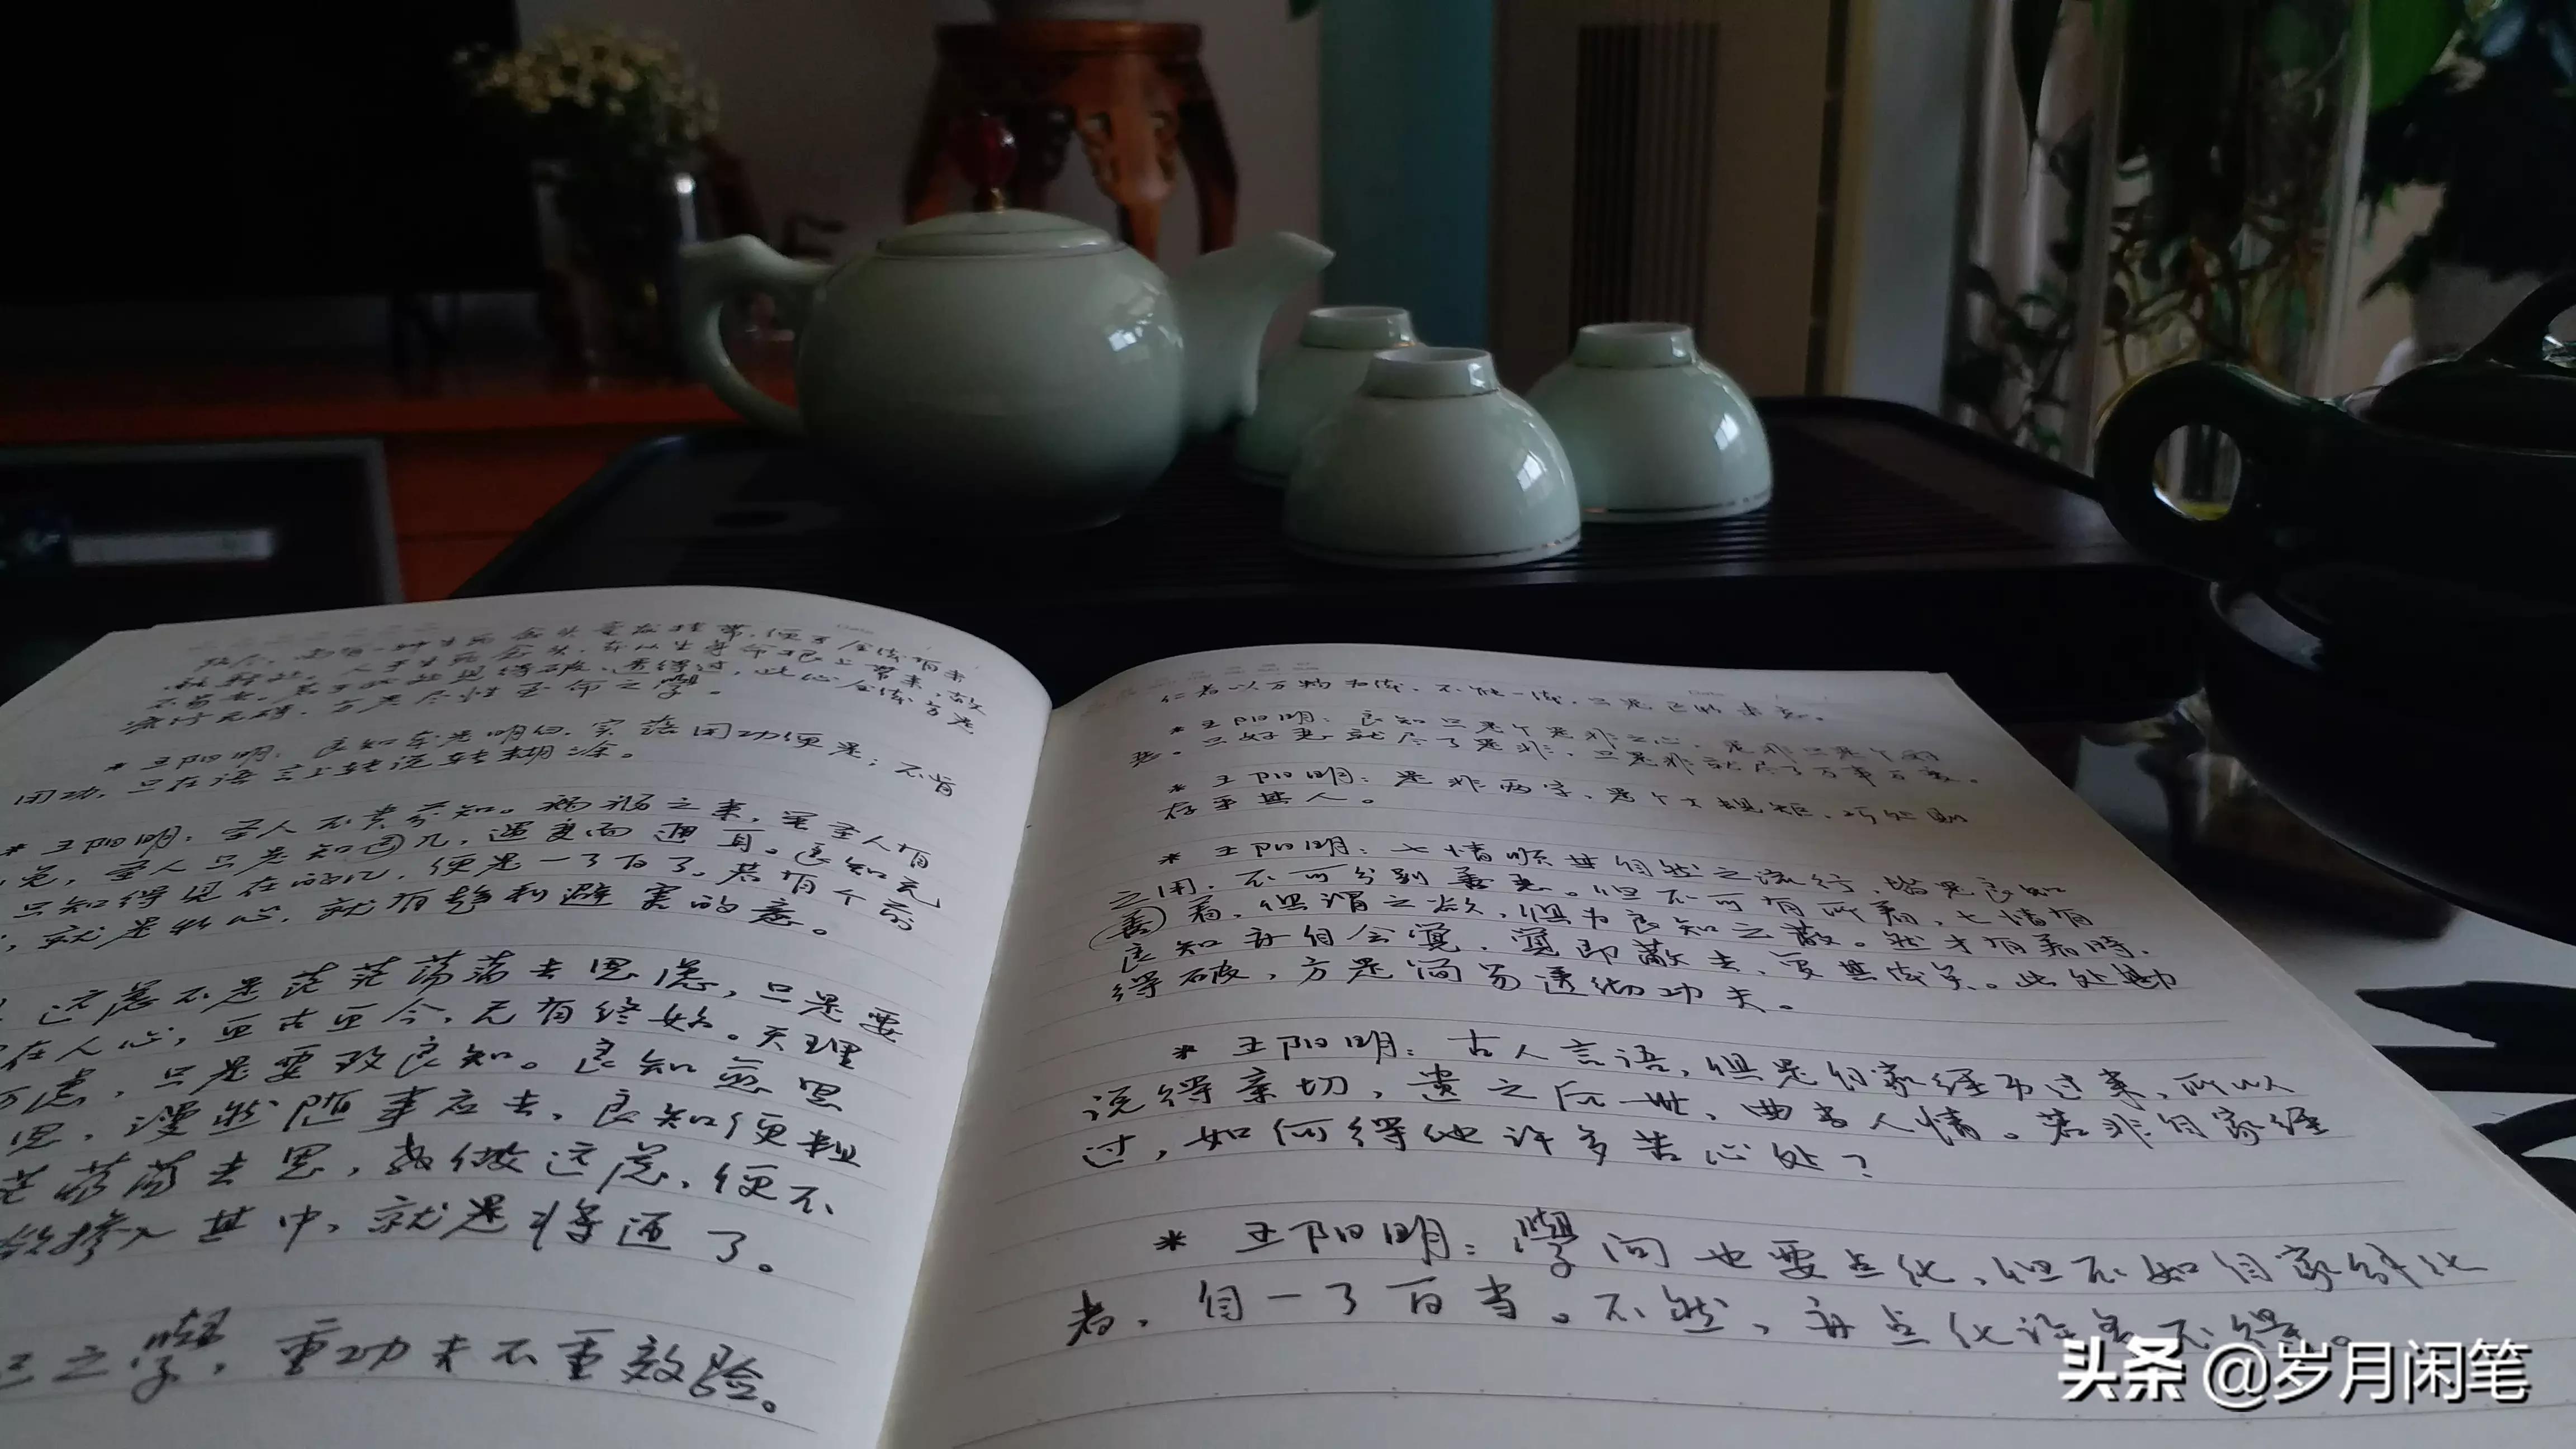 毫发挂带,便于全体有未
融释处。人于生死念头,本从生身命根上带来,故
不易去。若于此处见得破,透得过,此心全体方是
流行无碍,方是尽性至命之學。
* 王阳明:良知本是明白,实落用功便是;不肯
用功,只在语言上转说转糊涂。
* 王阳明:圣人不贵前知。祸福之来,虽圣人有
免,圣人只是知几,遇变而通耳。良知无
只知得见在的几,便是一了百了。若有个前
,就是私心,就有趋利避害的意。
远虑不是茫茫荡荡去思虑,只是要
在人心,亘古亘今,无有终始。天理
,只是要致良知。良知愈思
思,漫然随事应去,良知便粗
茫荡荡去思,教做远虑,便不
欲掺入其中,就是将迎了。
己之學,重功夫不重效验。
仁者以万物为体,不能一体,只是己私未忘。
* 王阳明:良知只是个是非之心,是非只是个好
恶。只好恶就尽了是非,只是非就尽了万事万变。
* 王阳明:是非两字,是个大规矩,巧处则
存乎其人。
* 王阳明:七情顺其自然之流行,皆是良知
之用,不可分别善恶。但不可有所着,七情有
着,俱谓之欲,俱为良知之蔽。然才有着时,
良知亦自会觉,觉即蔽去,复其体矣。此处勘
得破,方是简易透彻功夫。
* 王阳明:古人言语,俱是自家经历过来,所以
说得亲切,遗之后世,曲当人情。若非自家经
过,如何得他许多苦心处?
* 王阳明:學问也要点化,但不如自家解化
者,自一了百当。不然,亦点化许多不得。
头条 @岁月闲笔